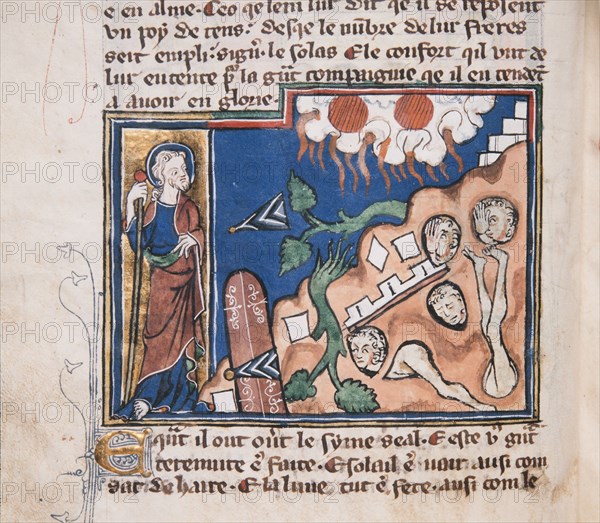 e en alme. Ceo qe len lur dit qe il se reposent
vn poy de tens. desqe le nũbre de lur freres
seit empli. signͥ. le solas E le confort qil vnt de
lur entente pͣ la gͣt compaignie qe il en tendẽt
a auoir en glorie.
Equͣt il out ouͥt le syme seal. E este vͦ gͣt
teremute ẽ faite. E soleil ẽ noir ausi com
sac de haire. E la lune tut ẽ fete. ausi com le